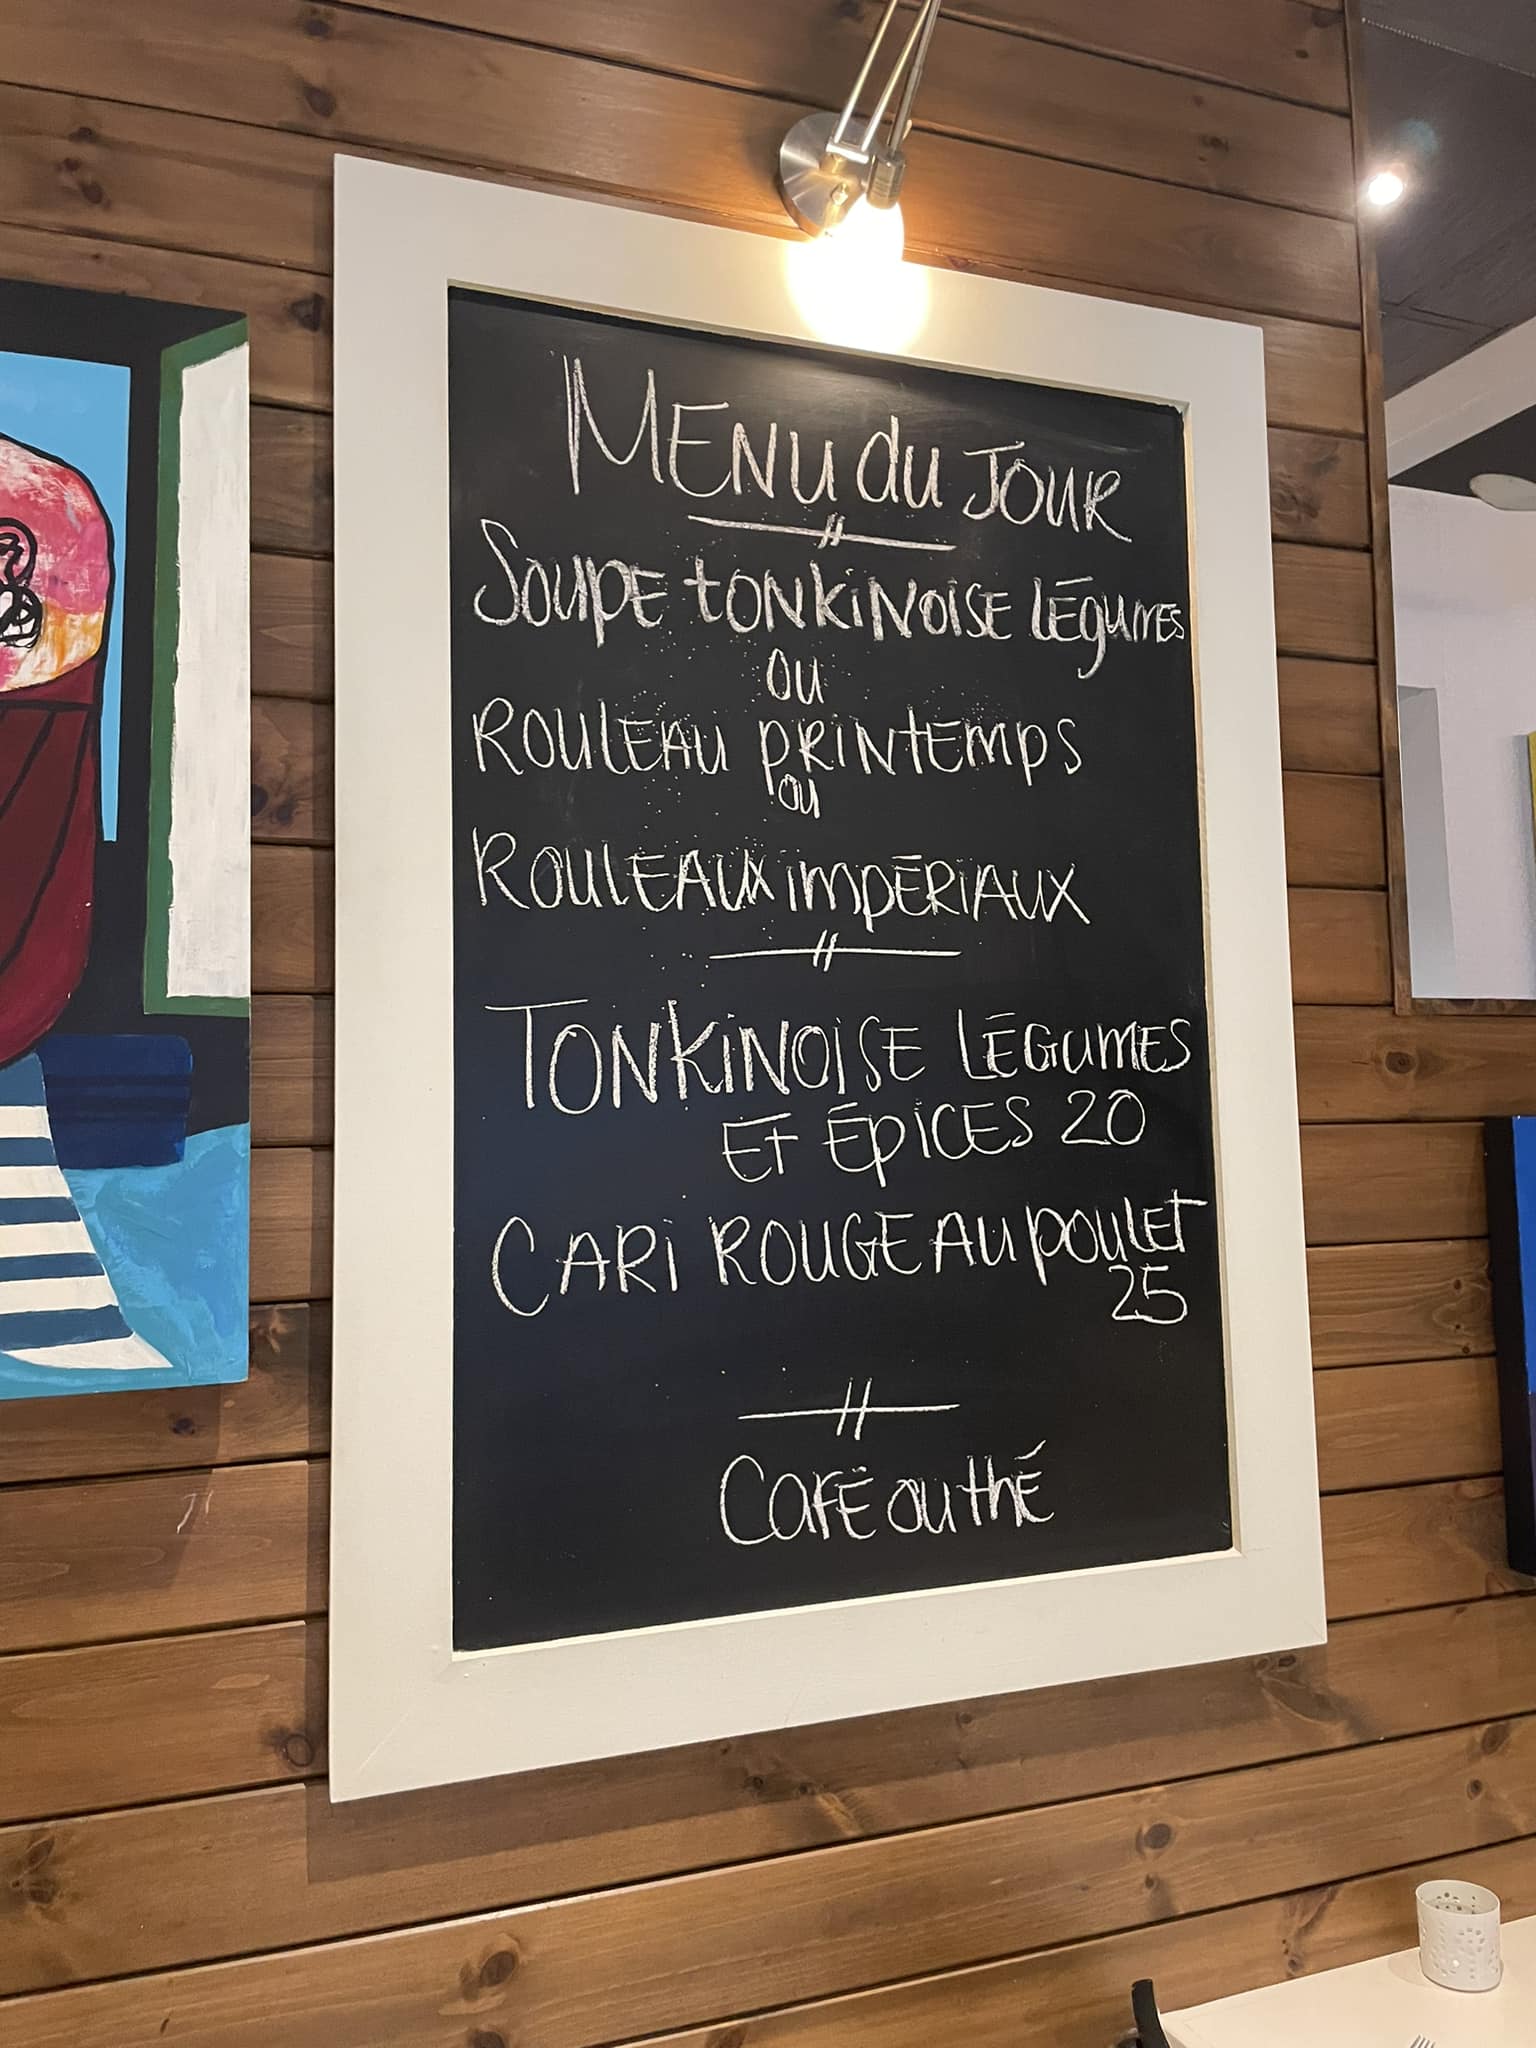 MENU du JOUR
SOUPE tONKiNOiSE LÉgUMES
OU
ROULEAU pRiNtEMps
OU
ROULEAUX iMpÉRiAUX
TONKiNOiSE LÉGUMES
Et ÉpiCES 20
CARi ROUGE AU pOULEt
25
CAFÉ ou thÉ